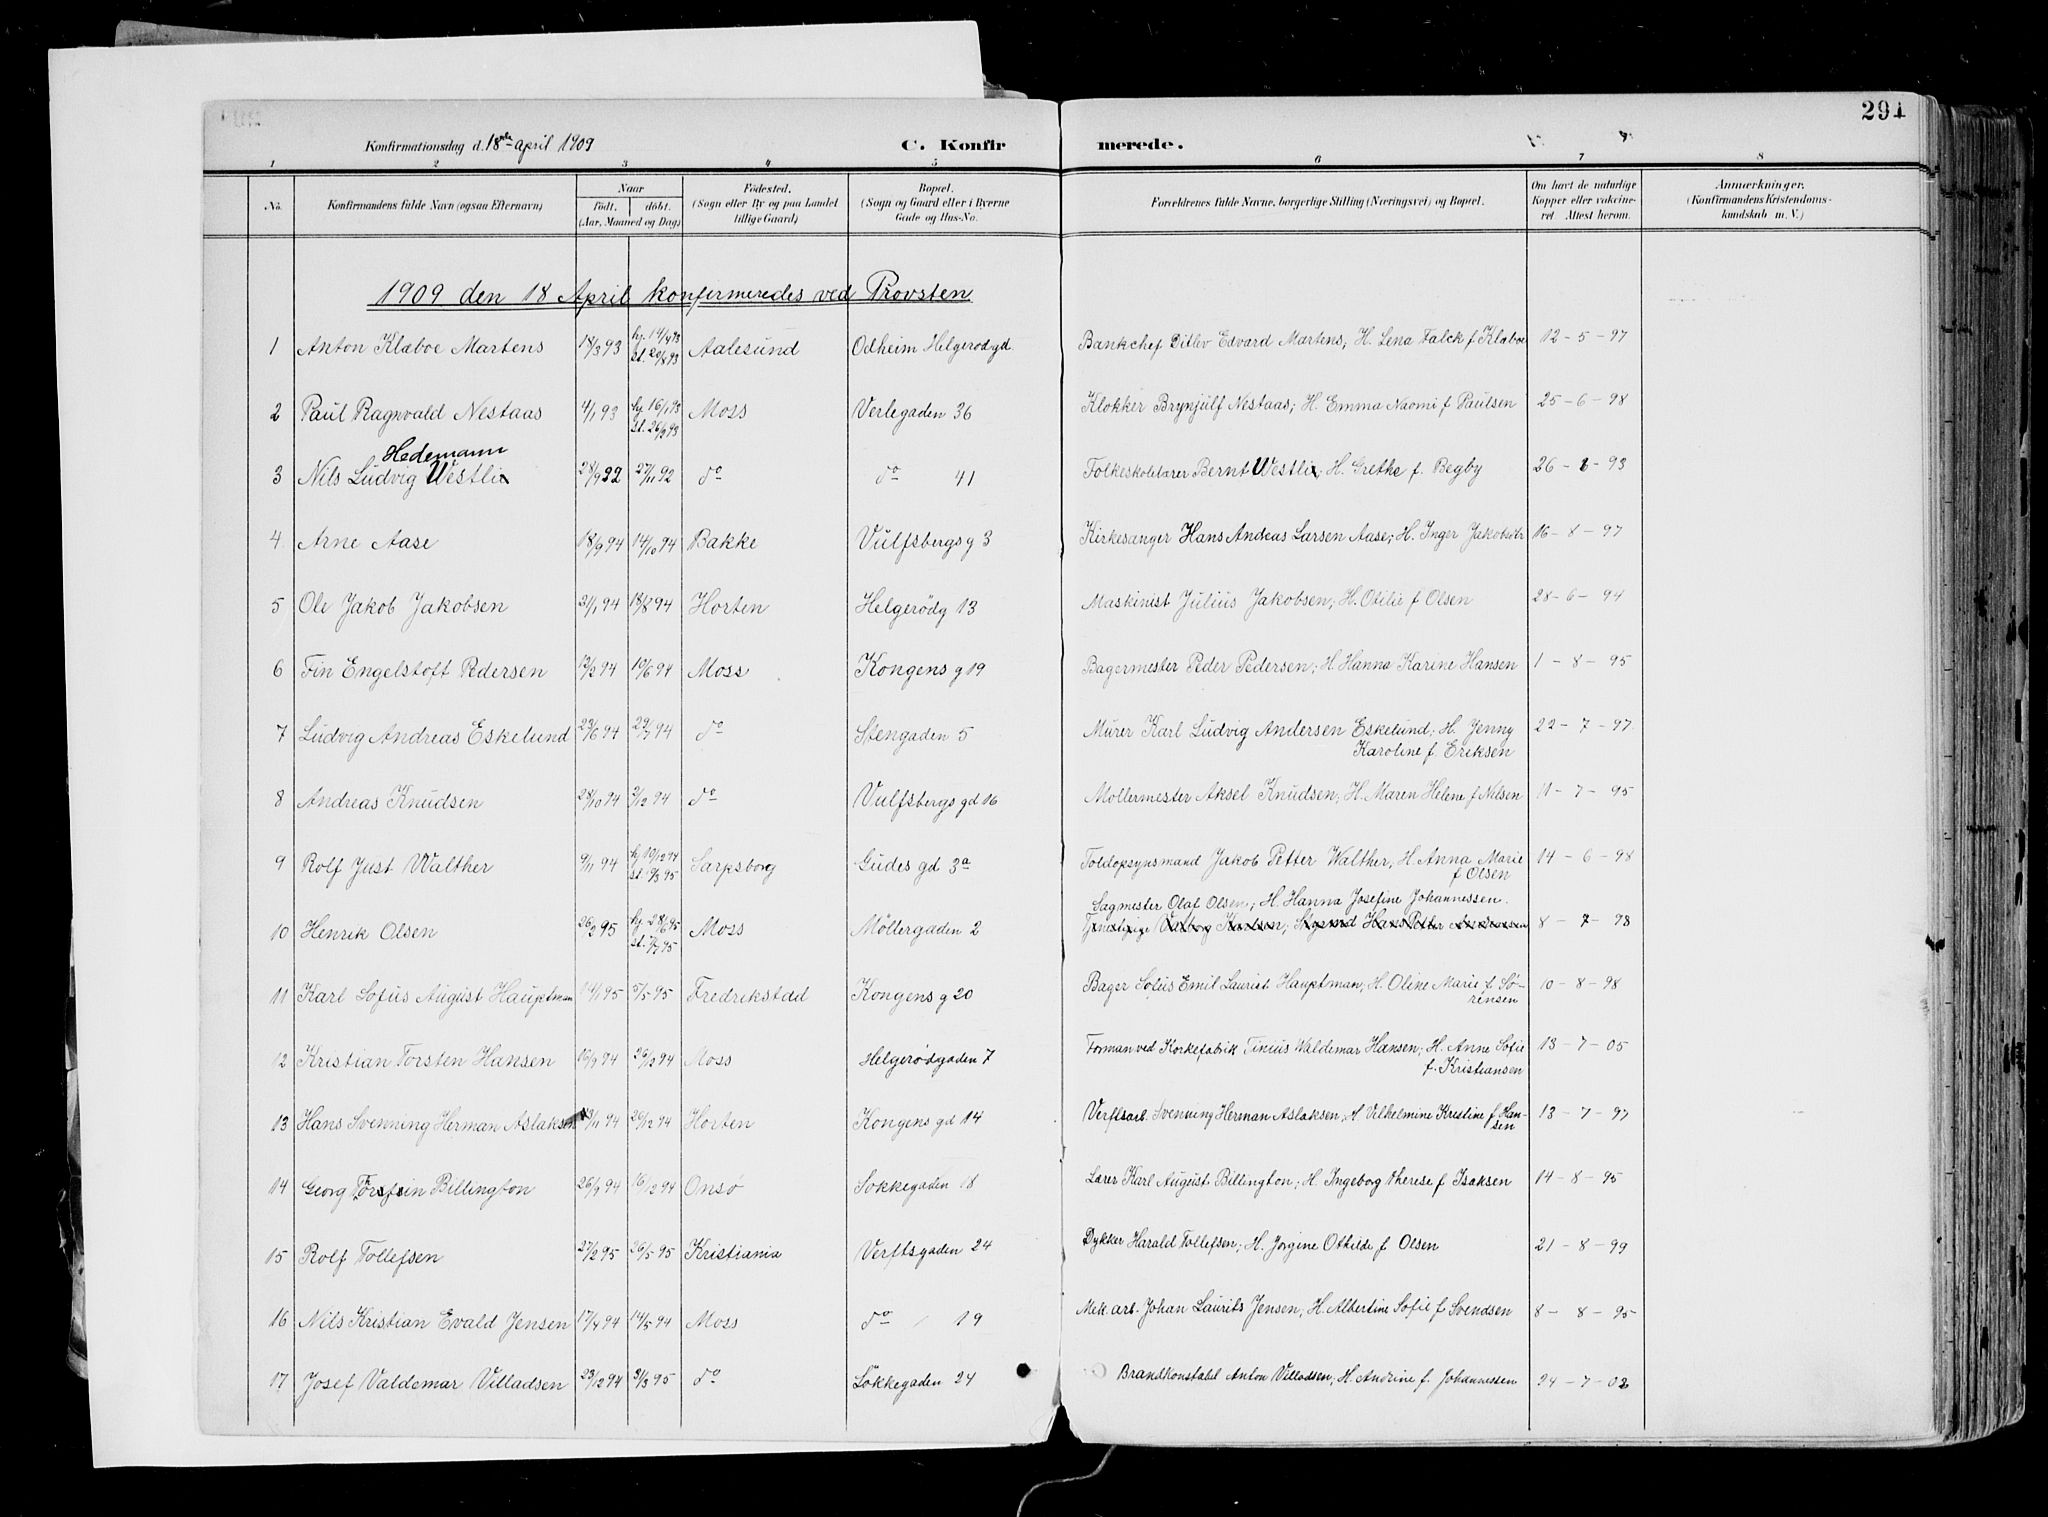 291
Konfirmationsdag d. 18de april 1909
C. Konfirmerede.
1 2 3 4 5 6 7 8
No.
Konfirmandens fulde Navn (ogsaa Efternavn)
Naar
Født. døbt.
(Aar, Maaned og Dag)
Fødested.
(Sogn eller By og paa Landet
tillige Gaard)
Bopæl.
(Sogn og Gaard eller i Byerne
Gade og Hus-No.
Forældrenes fulde Navne, borgerlige Stilling (Næringsvei) og Bopæl.
Om havt de naturlige
Kopper eller vakcine-
ret Attest herom.
Anmærkninger.
(Konfirmandens Kristendoms-
kundskab m. V.)
1909 den 18 April konfirmeredes ved Provsten
1 Anton Klæboe Martens 18/3 93 hj. 14/4 93 st. 20/8 93 Aalesund Odheim Helgerødgd. Bankchef Ditlev Edvard Martens; H. Lena Falck f Klæboe 12-5-97
2 Paul Ragnvald Nestaas 4/1 93 hj 16/1 93 st. 26/3 93 Moss Verlegaden 36 Klokker Brynjulf Nestaas; H. Emma Naomi f Paulsen 25-6-98
Hedemann
3 Nils Ludvig Westli 28/9 92 27/11 92 do do 41 Folkeskolelærer Bernt Westli; H. Grethe f. Begby 26-8-93
4. Arne Aase 18/9 94 14/10 94 Bakke Vulfsbergs g 3 Kirkesanger Hans Andreas Larsen Aase; H. Inger Jakobsdtr 16-8-97
5 Ole Jakob Jakobsen 21/1 94 18/8 94 Horten Helgerødg 13 Maskinist Julius Jakobsen; H. Otilie f Olsen 28-6-94
6 Fin Engelstoft Pedersen 13/2 94 10/6 94 Moss Kongens g 19 Bagermester Peder Pedersen; H. Hanna Karine Hansen 1-8-95
7 Ludvig Andreas Eskelund 23/6 94 29/7 94 do Stengaden 5 Murer Karl Ludvig Andersen Eskelund; H. Jenny 22-7-97
Karoline f. Eriksen
8 Andreas Knudsen 28/10 94 2/12 94 do Vulfsbergs gd 16 Møllermester Aksel Knudsen; H. Maren Helene f Nilsen 11-7-95
9 Rolf Just Walther 9/11 94 hj 10/12 94 st. 3/3 95 Sarpsborg Gudes gd 3a Toldopsynsmand Jakob Petter Walther; H Anna Marie 14-6-98
f Olsen
Sagmester Olaf Olsen; H. Hanna Josefine Johannessen.
10 Henrik Olsen 26/2 95 hj. 28/6 95 st. 7/7 95 Moss Møllergaden 2 Tjenestepige Karlsen; Hans Petter 8-7-98
11 Karl Sofus August Hauptman 14/1 95 5/5 95 Fredrikstad Kongens g 20 Bager Sofus Emil Laurist Hauptman; H. Oline Marie f Sø- 10-8-98
rensen
12 Kristian Torsten Hansen 16/9 94 26/12 94 Moss Helgerødgaden 7 Forman ved Korkefabrik Tinius Waldemar Hansen; H. Anne Sofie 13-7-05
f. Kristiansen
13 Hans Svenning Herman Aslaksen 23/11 94 26/12 94 Horten Kongens gd 14 Verftsarb. Svenning Herman Aslaksen, H Vilhelmine Kristine f Han- 13-7-97
sen
14 Georg Torstein Billington 26/9 94 16/12 94 Onsø Løkkegaden 18 Lærer Karl August Billington; H Ingeborg Therese f Isaksen 14-8-95
15 Rolf Tollefsen 27/2 95 26/5 95 Kristiania Verftsgaden 24 Dykker Harald Tollefsen; H. Jorgine Othilde f Olsen 21-8-99
16 Nils Kristian Evald Jensen 17/4 94 14/5 94 Moss do 19 Mek. arb. Johan Laurits Jensen; H. Albertine Sofie f Svendsen 8-8-95
17 Josef Valdemar Villadsen 23/12 94 31/3 95 do Løkkegaden 24 Brandkonstabel Anton Villadsen; H. Andrine f. Johannessen 24-7-02